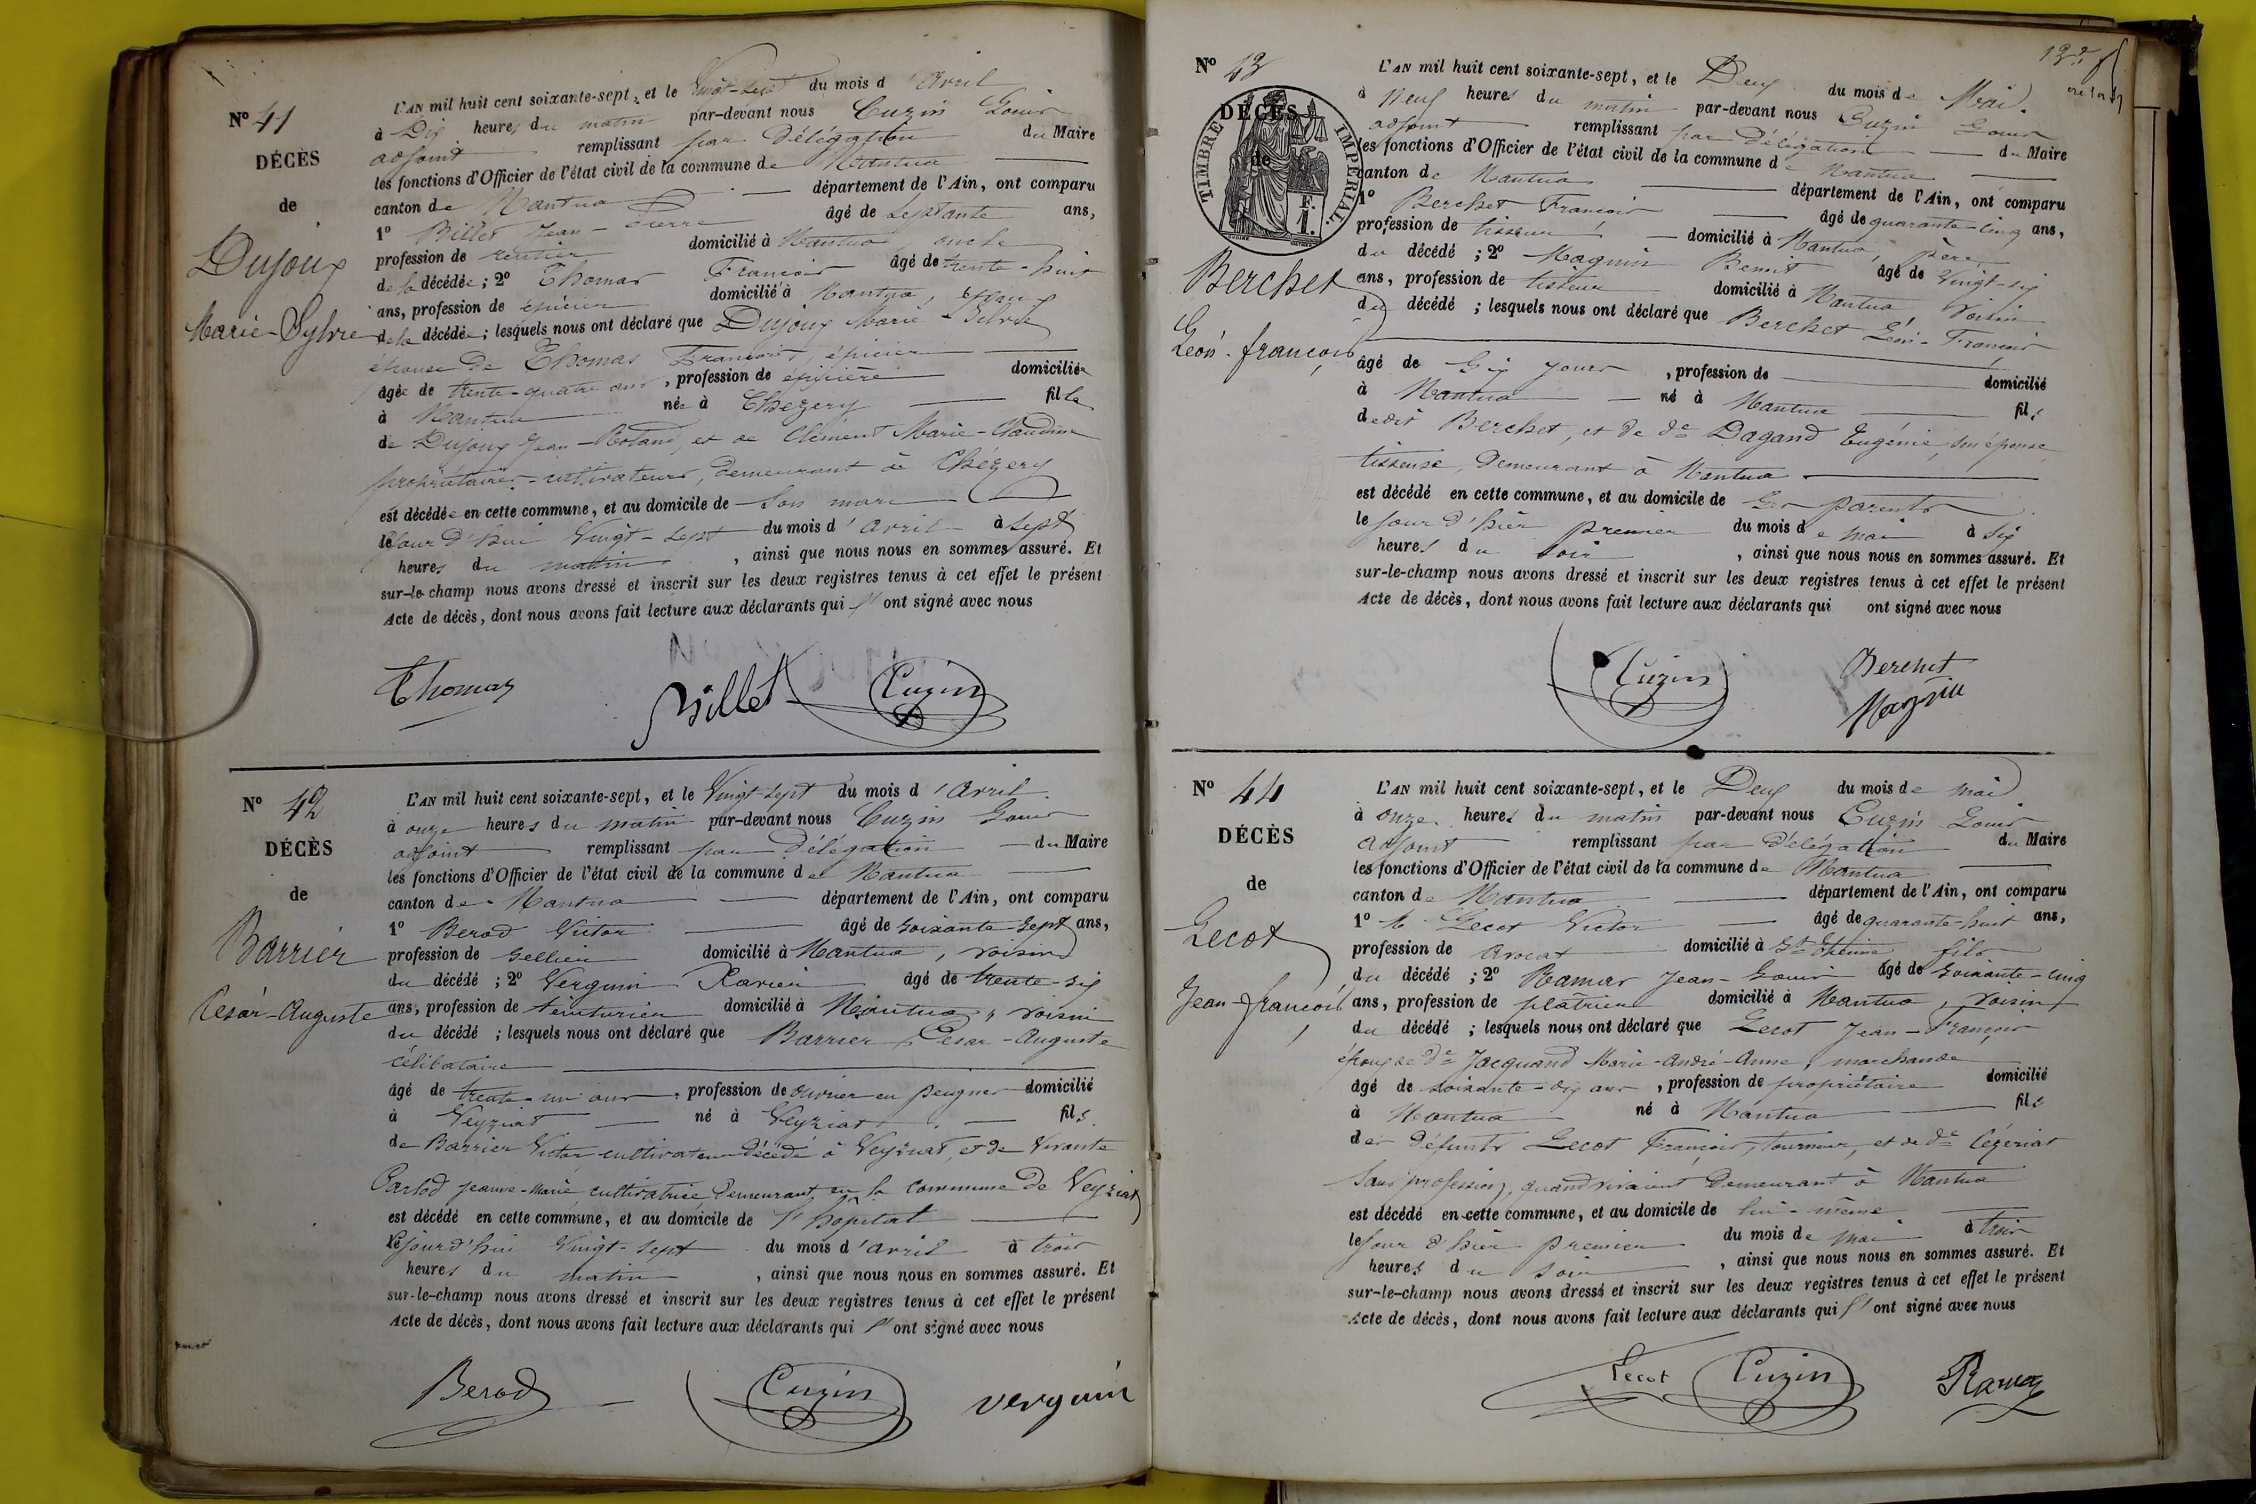 N° 41
DÉCÈS
de
Dujoux
Marie-Sylvie
L'AN mil huit cent soixante-sept, et le Vingt-Sept du mois d'Avril
à Dix heures du matin par-devant nous Cuzin Louis
adjoint remplissant par Délégation du Maire
les fonctions d'Officier de l'état civil de la commune de Nantua
canton de Nantua département de l'Ain, ont comparu
1° Billet Jean-Pierre âgé de Septante ans,
profession de rentier domicilié à Nantua, oncle
de la décédée; 2° Thomas François âgé de trente-huit
ans, profession de épicier domicilié à Nantua, époux
de la décédée; lesquels nous ont déclaré que Dujoux Marie-Sylvie
épouse de Thomas François, épicier
âgée de trente-quatre ans, profession de épicière domiciliée
à Nantua née à Chézery fille
de Dujoux Jean-Roland, et de Clément Marie-Claudine
propriétaires-cultivateurs, demeurant à Chézery
est décédée en cette commune, et au domicile de Son mari
le jour d'hui Vingt-Sept du mois d'avril à Sept
heures du matin, ainsi que nous nous en sommes assuré. Et
sur-le-champ nous avons dressé et inscrit sur les deux registres tenus à cet effet le présent
Acte de décès, dont nous avons fait lecture aux déclarants qui l'ont signé avec nous
Thomas Billet Cuzin
N° 42
DÉCÈS
de
Barrier
César-Auguste
L'AN mil huit cent soixante-sept, et le Vingt-Sept du mois d'Avril
à onze heures du matin par-devant nous Cuzin Louis
adjoint remplissant par Délégation du Maire
les fonctions d'Officier de l'état civil de la commune de Nantua
canton de Nantua département de l'Ain, ont comparu
1° Berod Victor âgé de soixante-sept ans,
profession de sellier domicilié à Nantua, voisin
du décédé; 2° Verguin Xavier âgé de trente-six
ans, profession de teinturier domicilié à Nantua, voisin
du décédé; lesquels nous ont déclaré que Barrier César-Auguste
célibataire
âgé de trente-un ans, profession de ouvrier en peignes domicilié
à Veyziat né à Veyziat fils
de Barrier Victor cultivateur décédé à Veyziat, et de Vivante
Carlod Jeanne-Marie cultivatrice demeurant en la commune de Veyziat
est décédé en cette commune, et au domicile de l'hopital
le jourd'hui Vingt-Sept du mois d'avril à trois
heures du matin, ainsi que nous nous en sommes assuré. Et
sur-le-champ nous avons dressé et inscrit sur les deux registres tenus à cet effet le présent
Acte de décès, dont nous avons fait lecture aux déclarants qui l'ont signé avec nous
Berod Cuzin Verguin
N° 43
DÉCÈS
de
TIMBRE IMPÉRIAL.
F.
1.
Berchet
Léon-françois
L'AN mil huit cent soixante-sept, et le Deux du mois de Mai.
à neuf heures du matin par-devant nous Cuzin Louis
adjoint remplissant par Délégation du Maire
les fonctions d'Officier de l'état civil de la commune de Nantua
canton de Nantua département de l'Ain, ont comparu
1° Berchet François âgé de quarante-cinq ans,
profession de tisseur domicilié à Nantua, père,
du décédé; 2° Magnin Benoit âgé de Vingt-six
ans, profession de tisseur domicilié à Nantua, Voisin
du décédé; lesquels nous ont déclaré que Berchet Léon-François
âgé de Six jours, profession de domicilié
à Nantua né à Nantua fils
dedit Berchet, et de de Dagand Eugénie son épouse
tisseuse, demeurant à Nantua
est décédé en cette commune, et au domicile de Ses parents
le jour d'hier premier du mois de mai à Six
heures du soir, ainsi que nous nous en sommes assuré. Et
sur-le-champ nous avons dressé et inscrit sur les deux registres tenus à cet effet le présent
Acte de décès, dont nous avons fait lecture aux déclarants qui ont signé avec nous
Cuzin Berchet
Magnin
N° 44
DÉCÈS
de
Lecot
Jean-françois
L'AN mil huit cent soixante-sept, et le Deux du mois de mai
à onze heures du matin par-devant nous Cuzin Louis
adjoint remplissant par Délégation du Maire
les fonctions d'Officier de l'état civil de la commune de Nantua
canton de Nantua département de l'Ain, ont comparu
1° M Lecot Victor âgé de quarante-huit ans,
profession de Avocat domicilié à St Etienne fils
du décédé; 2° Ramas Jean-Louis âgé de Soixante-cinq
ans, profession de platrier domicilié à Nantua, voisin
du décédé; lesquels nous ont déclaré que Lecot Jean-François
époux de de Jacquand Marie-André-Anne, marchande
âgé de soixante-dix ans, profession de propriétaire domicilié
à Nantua né à Nantua fils
des défunts Lecot François, tourneur, et de de Cézériat
Sans profession, quand vivaient demeurant à Nantua
est décédé en cette commune, et au domicile de lui-même
le jour d'hier premier du mois de mai à trois
heures du soir, ainsi que nous nous en sommes assuré. Et
sur-le-champ nous avons dressé et inscrit sur les deux registres tenus à cet effet le présent
Acte de décès, dont nous avons fait lecture aux déclarants qui l'ont signé avec nous
Lecot Cuzin Ramas